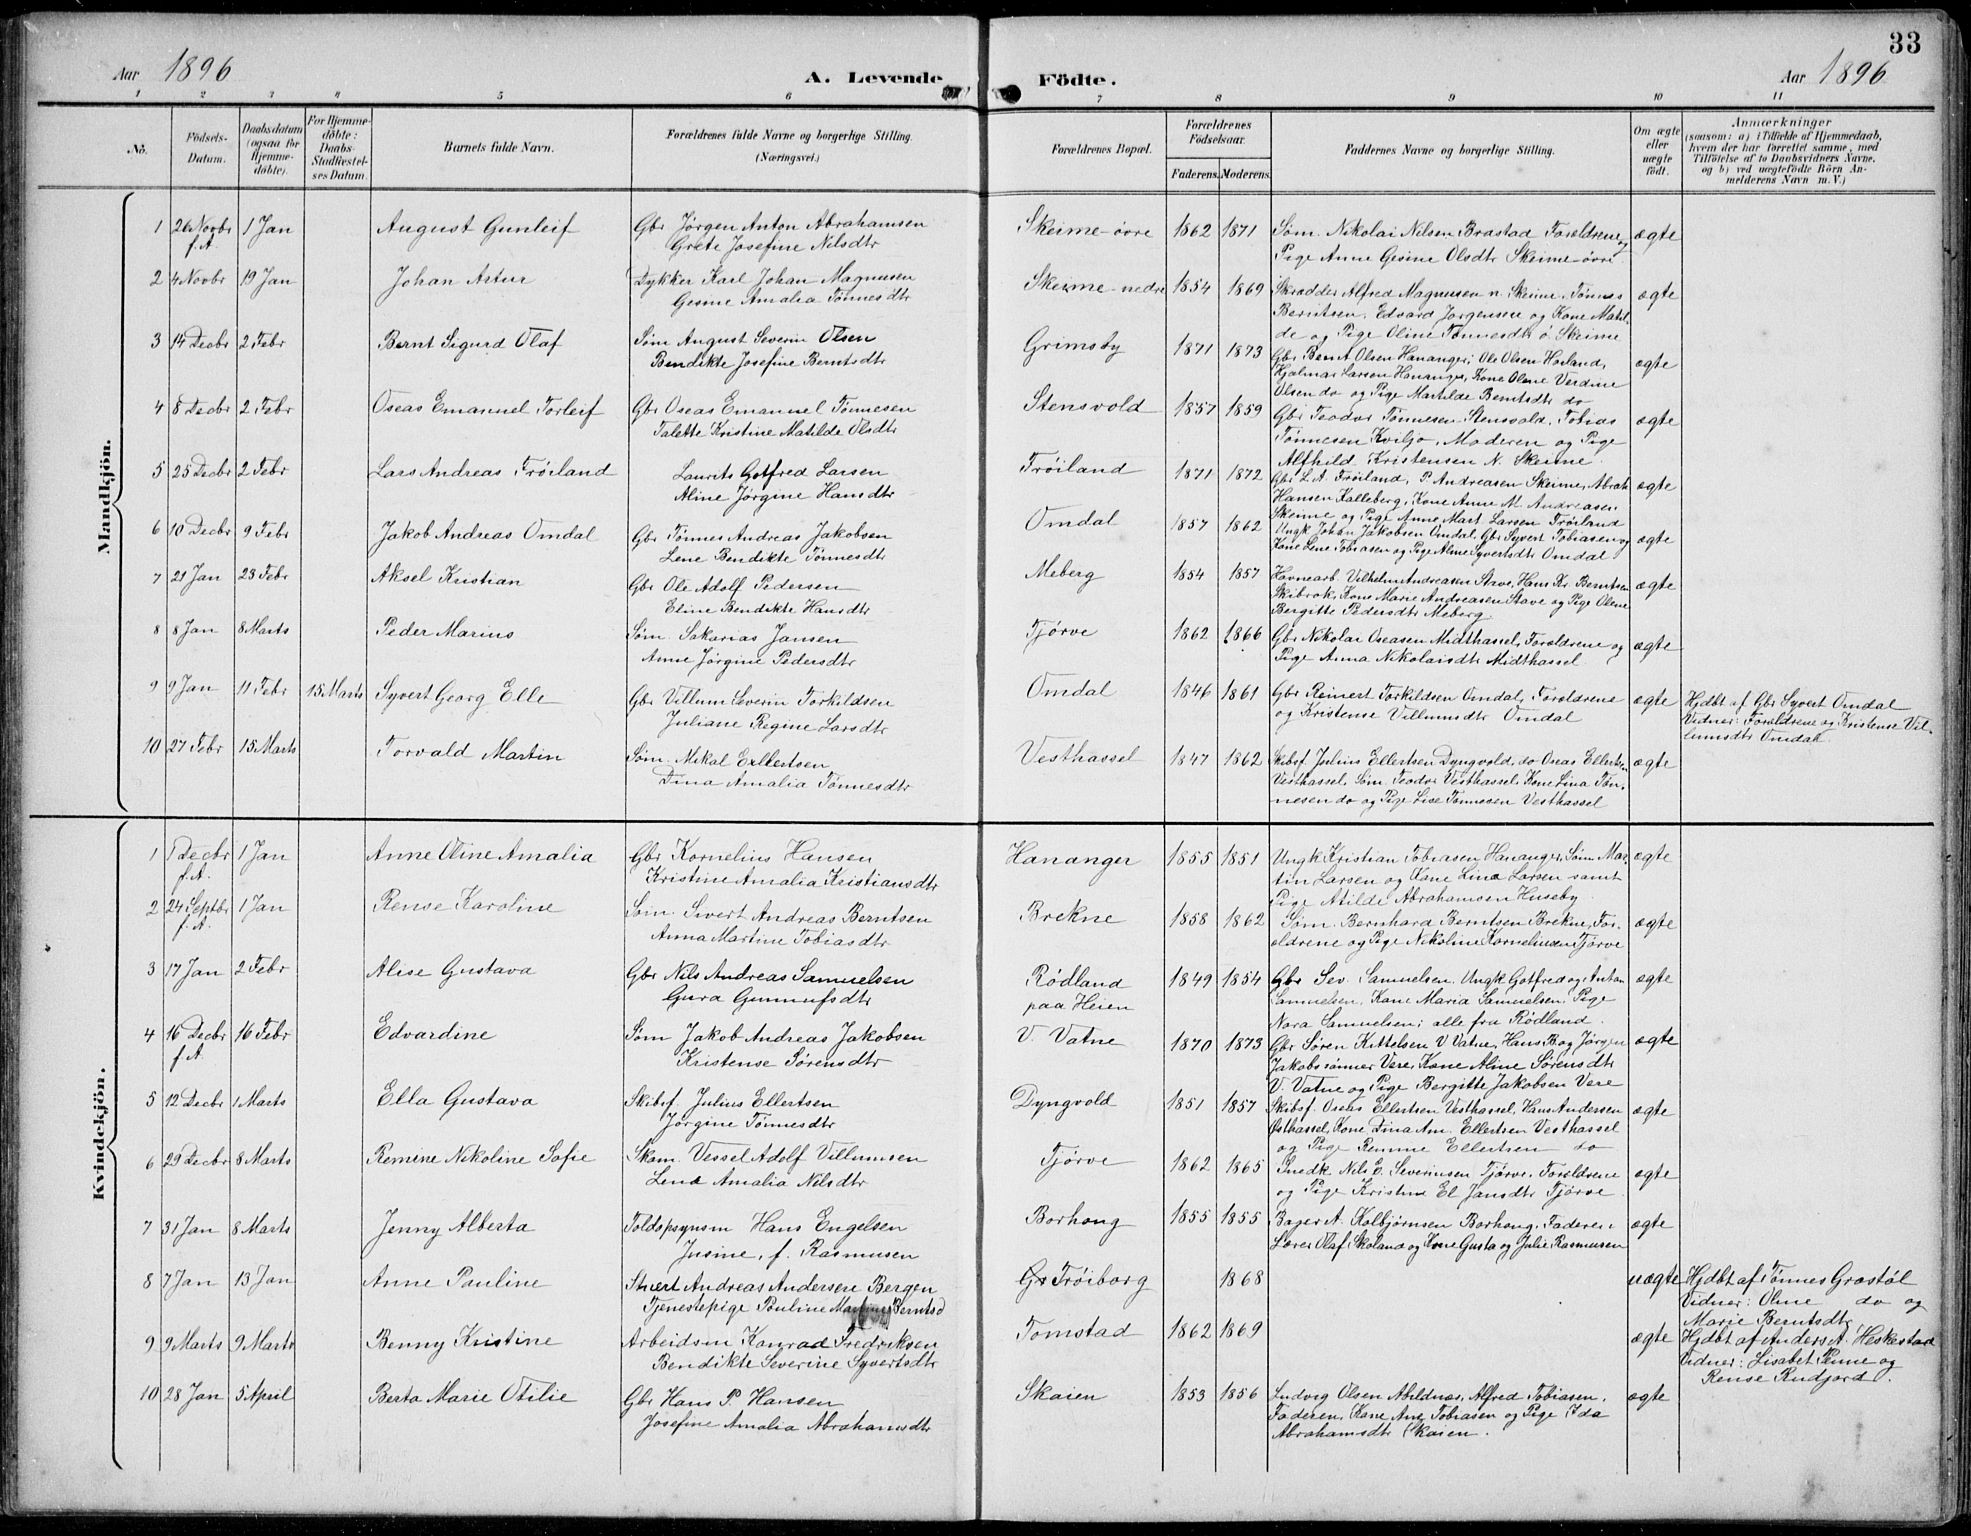 33
Aar 1896 A. Levende Födte. Aar 1896
1 2 3 4 5 6 7 8 9 10 11
No.
Födsels-Datum.
Daabsdatum (ogsaa for Hjemme-döbte).
For Hjemme-döbte: Daabs-Stadfæstel-ses Datum.
Barnets fulde Navn.
Forældrenes fulde Navne og borgerlige Stilling.
(Næringsvei.)
Forældrenes Bopæl.
Forældrenes Födselsaar.
Faderens. Moderens.
Faddernes Navne og borgerlige Stilling.
Om ægte eller uægte födt.
Anmærkninger
(saasom: a) i Tilfælde af Hjemmedaab,
hvem der har forrettet samme, med
Tilföielse af to Daabsvidners Navne,
og b) ved uægtefödte Börn An-
melderens Navn m. V.)
Mandkjön.
1 26 Novbr f.A. 1 Jan August Gunleif Gbr Jørgen Anton Abrahamsen Skeime-övre 1862 1871 Søm. Nikolai Nilsen Brastad Forældrene og ægte
Grete Josefine Nilsdtr Pige Anne Gesine Olsdtr Skeime-övre
2 4 Novbr 19 Jan Johan Artur Dykker Karl Johan Magnusen Skeime-nedre 1854 1869 Skrædder Alfred Magnusen n. Skeime, Tønnes ægte
Gesine Amalia Tønnesdtr Berntsen, Edvard Jørgensen og Kone Matil-
de og Pige Oline Tønnesdtr ö. Skeime
3 14 Decbr 2 Febr Bernt Sigurd Olaf Søm August Severin Olsen Grimsby 1871 1873 Gbr Bernt Olsen Hananger, Ole Olsen Hauland, ægte
Bendikte Josefine Berntsdtr Hjalmar Larsen Hananger, Kone Oline Verdine
Olsen do og Pige Mathilde Berntsdtr do
4 8 Decbr 2 Febr Oseas Emanuel Torleif Gbr Oseas Emanuel Tønnesen Stensvold 1857 1859 Gbr Teodor Tønnesen Stensvold, Tobias ægte
Talette Kristine Matilde Olsdtr Tønnesen Kviljo, Moderen og Pige
Alfhild Kristensen N. Skeime.
5 25 Decbr 2 Febr Lars Andreas Trøiland Laurits Gotfred Larsen Trøiland 1871 1872 Gbr L.A. Trøiland, P. Andreasen Skeime, Abrah. ægte
Aline Jørgine Hansdtr Hansen Kalleberg, Kone Anne M. Andreasen
Skeime og Pige Anne Mart. Larsen Trøiland
6 10 Decbr 9 Febr Jakob Andreas Omdal Gbr Tønnes Andreas Jakobsen Omdal 1857 1862 Ungk Johan Jakobsen Omdal, Gbr Syvert Tobiasen og ægte
Lene Bendikte Tønnesdtr Kone Lene Tobiasen og Pige Aline Syvertsdtr Omdal
7 21 Jan 23 Febr Aksel Kristian Gbr Ole Adolf Pedersen Meberg 1854 1857 Havnearb. Vilhelm Andreasen Stave, Hans Kr. Berntsen ægte
Eline Bendikte Hansdtr Skibrok, Kone Marie Andreasen Stave og Pige Olene
Bergitte Pedersdtr Meberg
8 8 Jan 8 Marts Peder Marius Søm. Sakarias Jansen Tjørve 1862 1866 Gbr Nikolai Oseasen Midthassel, Forældrene og ægte
Anne Jørgine Pedersdtr Pige Anna Nikolaisdtr Midthassel
9 9 Jan 11 Febr 15 Marts Syvert Georg Elle Gbr Villum Severin Torkildsen Omdal 1846 1861 Gbr Reinert Torkildsen Omdal, Forældrene ægte Hjdbt af Gbr Syvert Omdal
Juliane Regine Larsdtr og Kristense Villumsdtr Omdal Vidner: Forældrene og Kristense Vil-
lumsdtr Omdal.
10 27 Febr 15 Marts Torvald Martin Søm. Mikal Ellertsen Vesthassel 1847 1862 Skibsf. Julius Ellertsen Dyngvold, do Oseas Ellertsen ægte
Dina Amalia Tønnesdtr Vesthassel, Søm. Teodor Vesthassel, Kone Lina Tøn-
nesen do og Pige Lise Tønnesen Vesthassel
Kvindekjön.
1 1 Decbr f.A. 1 Jan Anne Oline Amalia Gbr Kornelius Hansen Hananger 1855 1851 Ungk Kristian Tobiasen Hananger, Søm Mar- ægte
Kristine Amalia Kristiansdtr tin Larsen og Kone Lina Larsen samt
Pige Atilde Abrahamsen Huseby.
2 24 Septbr f.A. 1 Jan Rense Karoline Søm. Sivert Andreas Berntsen Brekne 1858 1862 Søm. Bernhard Berntsen Brekne, For- ægte
Anna Martine Tobiasdtr ældrene og Pige Nikoline Korneliusen Tjørve
3 17 Jan 2 Febr Alise Gustava Gbr Nils Andreas Samuelsen Rødland 1849 1854 Gbr Sev. Samuelsen, Ungk Gotfred og Anton ægte
Gura Gunnufsdtr paa Heien Samuelsen, Kone Maria Samuelsen, Pige
Nora Samuelsen; alle fra Rødland.
4 16 Decbr f.A. 16 Febr Edvardine Søm Jakob Andreas Jakobsen V. Vatne 1870 1873 Gbr Søren Kittelsen V Vatne, Hans B og Jørgen ægte
Kristense Sørensdtr Jakobssønner Vere, Kone Aline Sørensdtr
V. Vatne og Pige Bergitte Jakobsen Vere
5 12 Decbr 1 Marts Ella Gustava Skibsf. Julius Ellertsen Dyngvold 1851 1857 Skibsf. Oseas Ellertsen Vesthassel, Hans Andersen ægte
Jørgine Tønnesdtr Østhassel, Kone Dina Am. Ellertsen Vesthassel
og Pige Remme Ellertsen do
6 29 Decbr 8 Marts Remine Nikoline Sofie Skom. Vessel Adolf Villumsen Tjørve 1862 1865 Snedk Nils E. Severinsen Tjørve, Forældrene ægte
Lena Amalia Nilsdtr og Pige Kristine El Jansdtr Tjørve
7 31 Jan 8 Marts Jenny Alberta Toldopsynsm Hans Engelsen Borhoug 1855 1855 Bager A. Kolbjørnsen Borhoug, Faderen, ægte
Jusine, f. Rasmusen Lærer Olaf Skoland og Kone Gusta og Julie Rasmusen
8 7 Jan 13 Jan Anne Pauline Andreas Andersen Bergen Trøiborg 1868 uægte Hjdbt af Tønnes Grostøl
Tjenestepige Pouline Martine Berntsd Vidner: Oline do og
Marie Berntsdtr
9 9 Marts 9 Marts Benny Kristine Arbeidsm Konrad Fredriksen Tomstad 1862 1869 ægte Hjdbt af Anders A. Heskestad
Bendikte Severine Syvertsdtr Vidner: Lisabet Penne og
Rense Rudjord.
10 28 Jan 5 April Berta Marie Otilie Gbr Hans P. Hansen Skaien 1853 1856 Ludvig Olsen Abildnes, Alfred Tobiasen, ægte
Josefine Amalia Abrahamsdtr Faderen, Kone Ane Tobiasen og Pige Ida
Abrahamsdtr Skaien.